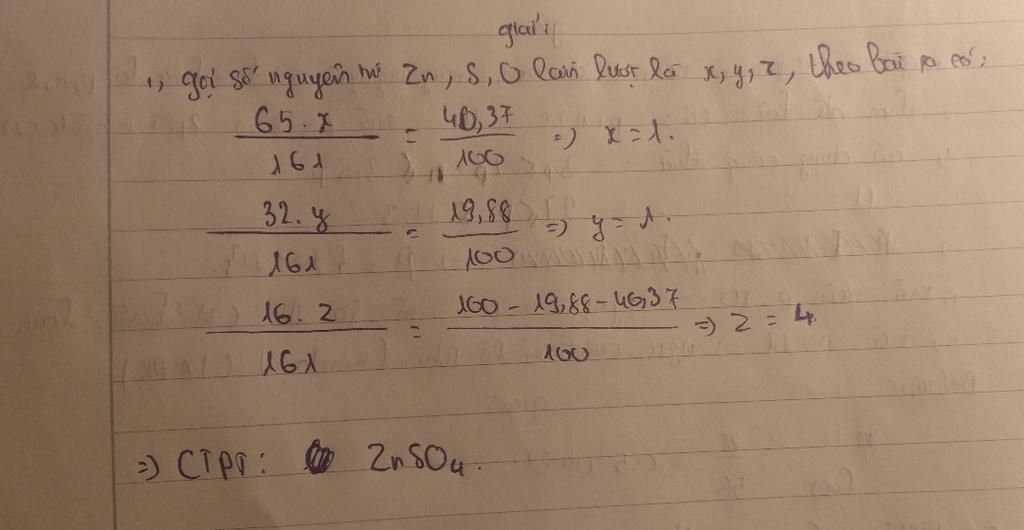 giải:
1, gọi số nguyên tử Zn, S, O lần lượt là x, y, z, theo bài ra có:
65.x / 161 = 40,37 / 100 => x = 1.
32.y / 161 = 19,88 / 100 => y = 1.
16.z / 161 = 100 - 19,88 - 40,37 / 100 => z = 4.
=> CTPT: ZnSO4.